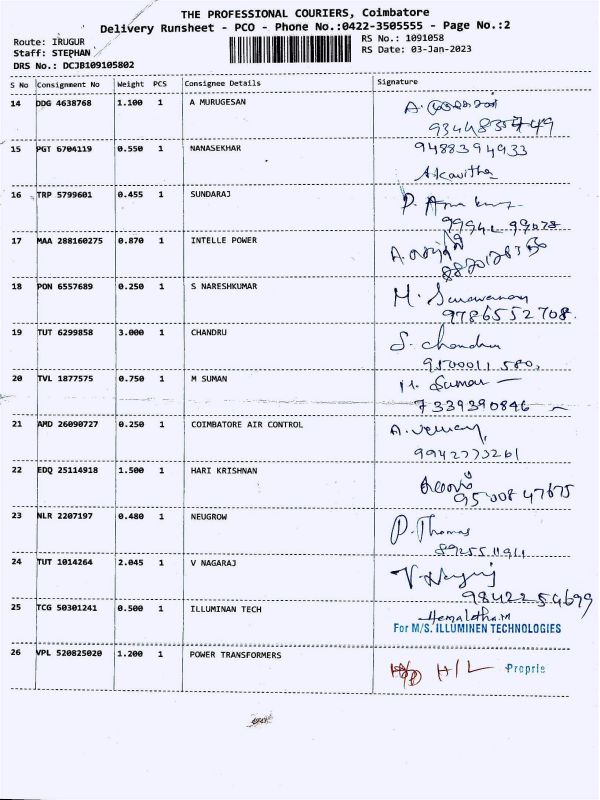 THE PROFESSIONAL COURIERS, Coimbatore
Delivery Runsheet - PCO - Phone No.:0422-3505555 - Page No.:2
Route: IRUGUR
RS No.: 1091058
Staff: STEPHAN
RS Date: 03-Jan-2023
DRS No.: DCJB109105802
S No Consignment No Weight PCS Consignee Details Signature
14 DDG 4638768 1.100 1 A MURUGESAN
15 PGT 6704119 0.550 1 NANASEKHAR 9488394933
A.Kavitha
16 TRP 5799601 0.455 1 SUNDARAJ
17 MAA 288160275 0.870 1 INTELLE POWER
18 PON 6557689 0.250 1 S NARESHKUMAR M. Saravanan
9786552708.
19 TUT 6299858 3.000 1 CHANDRU S. chandru
9500011580,
20 TVL 1877575 0.750 1 M SUMAN M. Suman
7339390846
21 AMD 26090727 0.250 1 COIMBATORE AIR CONTROL
9942773261
22 EDQ 25114918 1.500 1 HARI KRISHNAN
9500847675
23 NLR 2207197 0.480 1 NEUGROW P. Thomas
8925511911
24 TUT 1014264 2.045 1 V NAGARAJ V. Nagaraj
9842254699
25 TCG 50301241 0.500 1 ILLUMINAN TECH Hemalatha.M
For M/S. ILLUMINEN TECHNOLOGIES
26 VPL 520825020 1.200 1 POWER TRANSFORMERS H/L Proprie